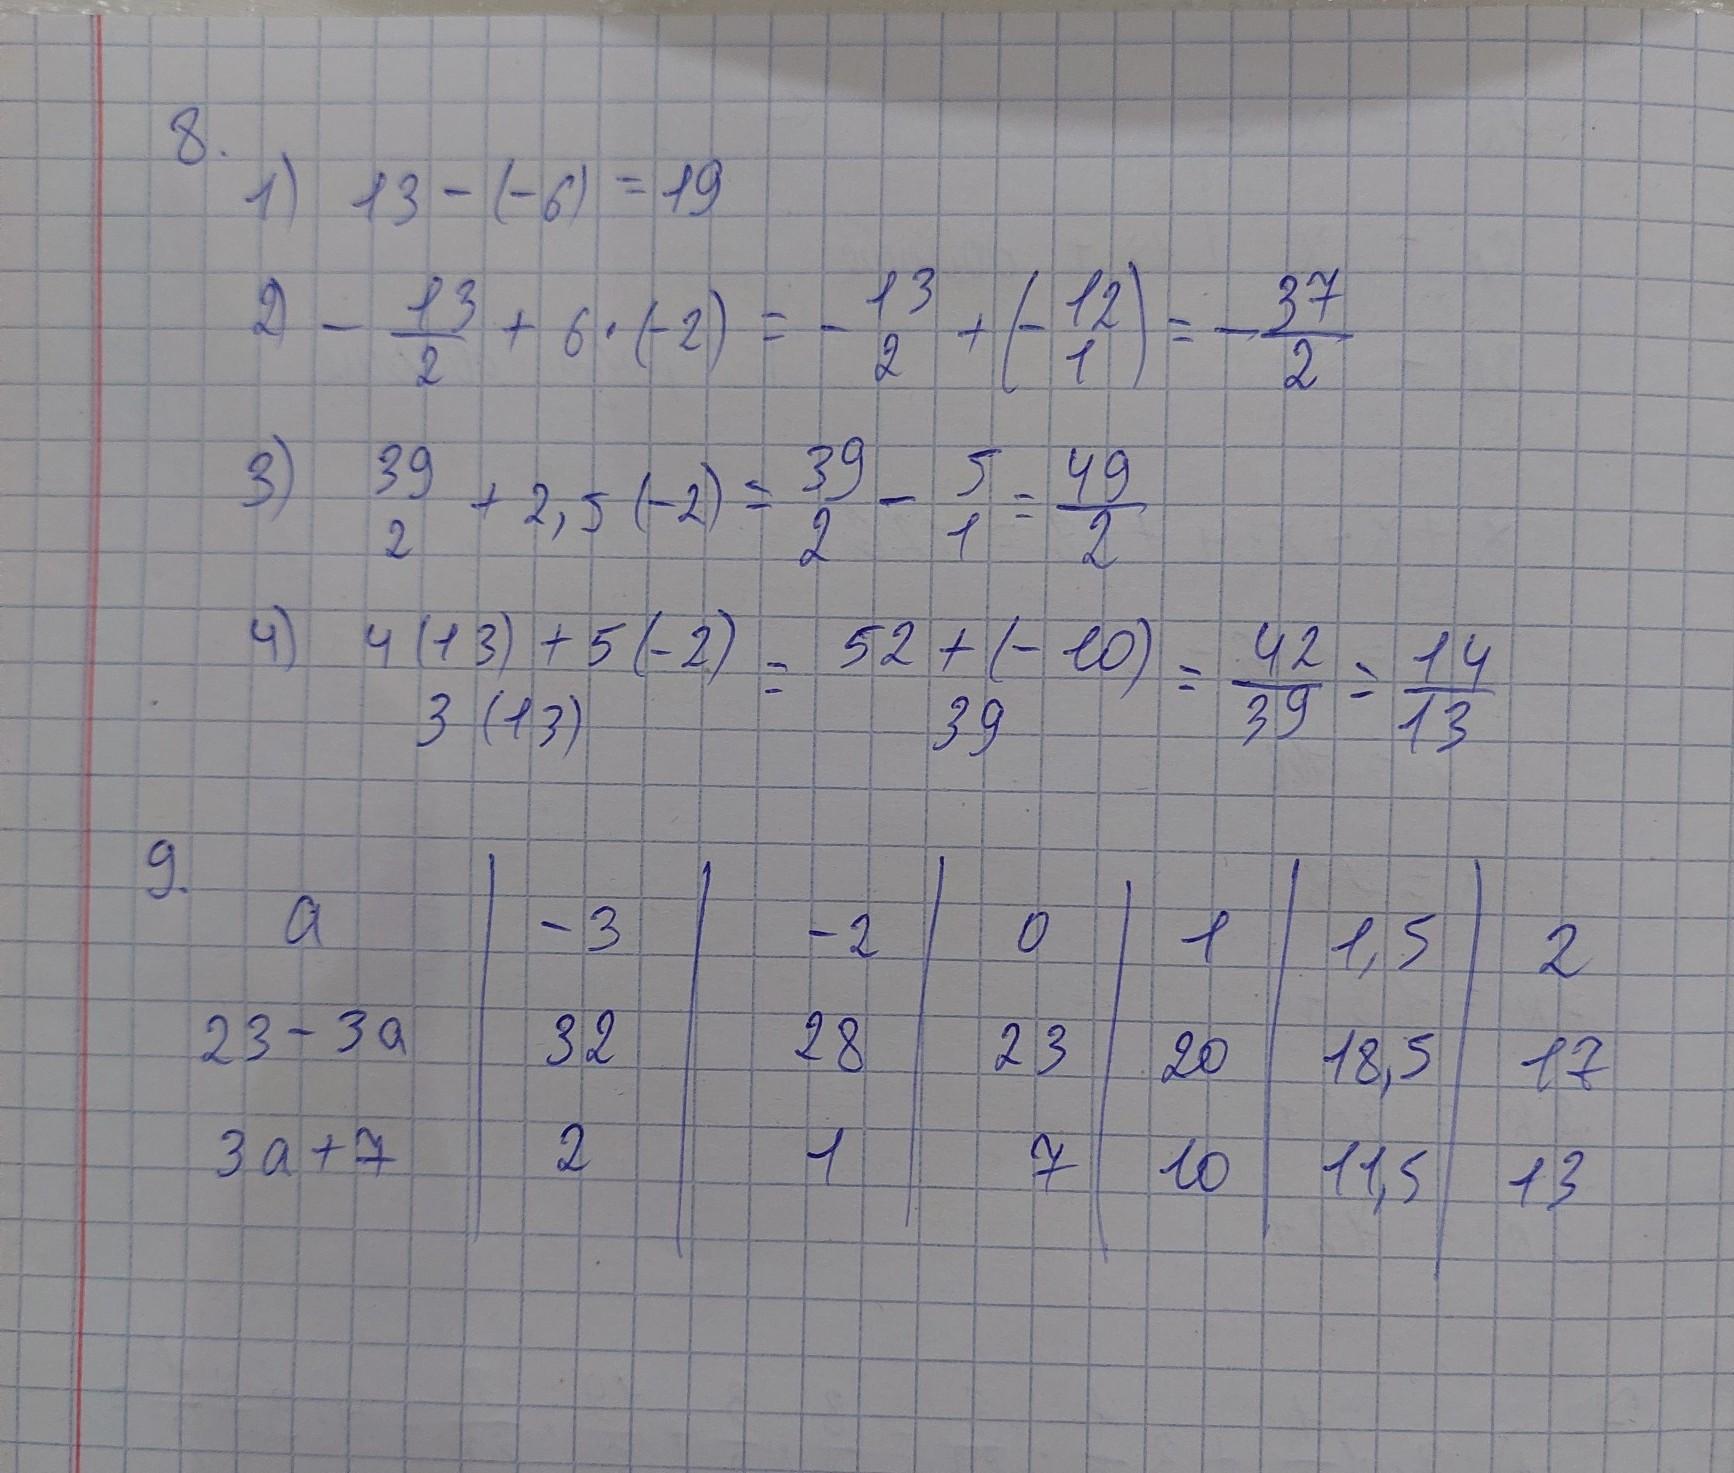 8.
1) 13 - (-6) = 19
2) - 13/2 + 6 · (-2) = - 13/2 + (- 12/1) = - 37/2
3) 39/2 + 2,5 (-2) = 39/2 - 5/1 = 49/2
4) 4(13) + 5(-2) / 3(13) = 52 + (-10) / 39 = 42/39 = 14/13
9.
a | -3 | -2 | 0 | 1 | 1,5 | 2
23 - 3a | 32 | 28 | 23 | 20 | 18,5 | 17
3a + 7 | 2 | 1 | 7 | 10 | 11,5 | 13